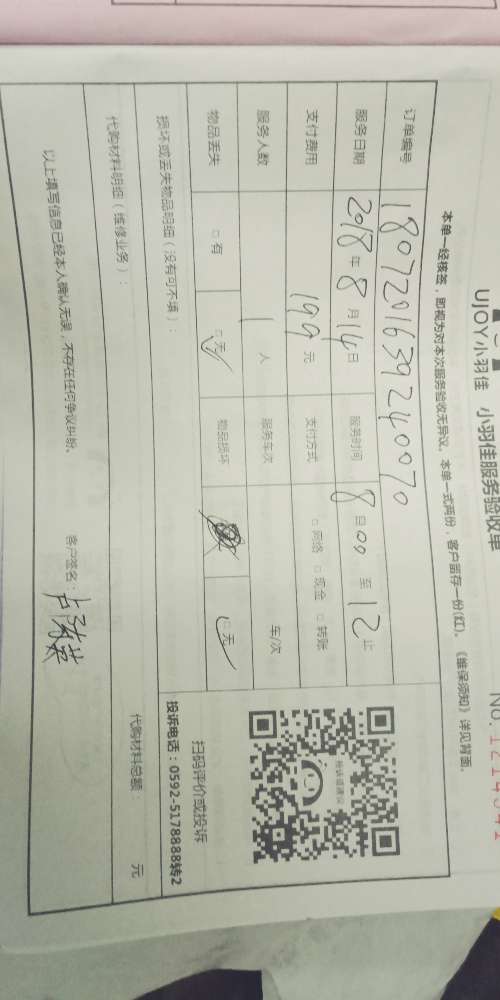 UJOY小羽佳 小羽佳服务验收单
本单一经核签，即视为对本次服务验收无异议。本单一式两份，客户留存一份(红)。《维保须知》详见背面。
订单编号 1807201639240070
服务日期 2018年8月14日 服务时间 8日00至12止
支付费用 199元 支付方式 □网络 □现金 □转账
服务人数 1人 服务车次 车/次
物品丢失 □有 □无 物品损坏 □无
损坏或丢失物品明细（没有可不填）：
代购材料明细（维修业务）： 代购材料总额： 元
以上填写信息已经本人确认无误，不存在任何争议纠纷。 客户签名：
扫码评价或投诉
投诉电话：0592-5178888转2